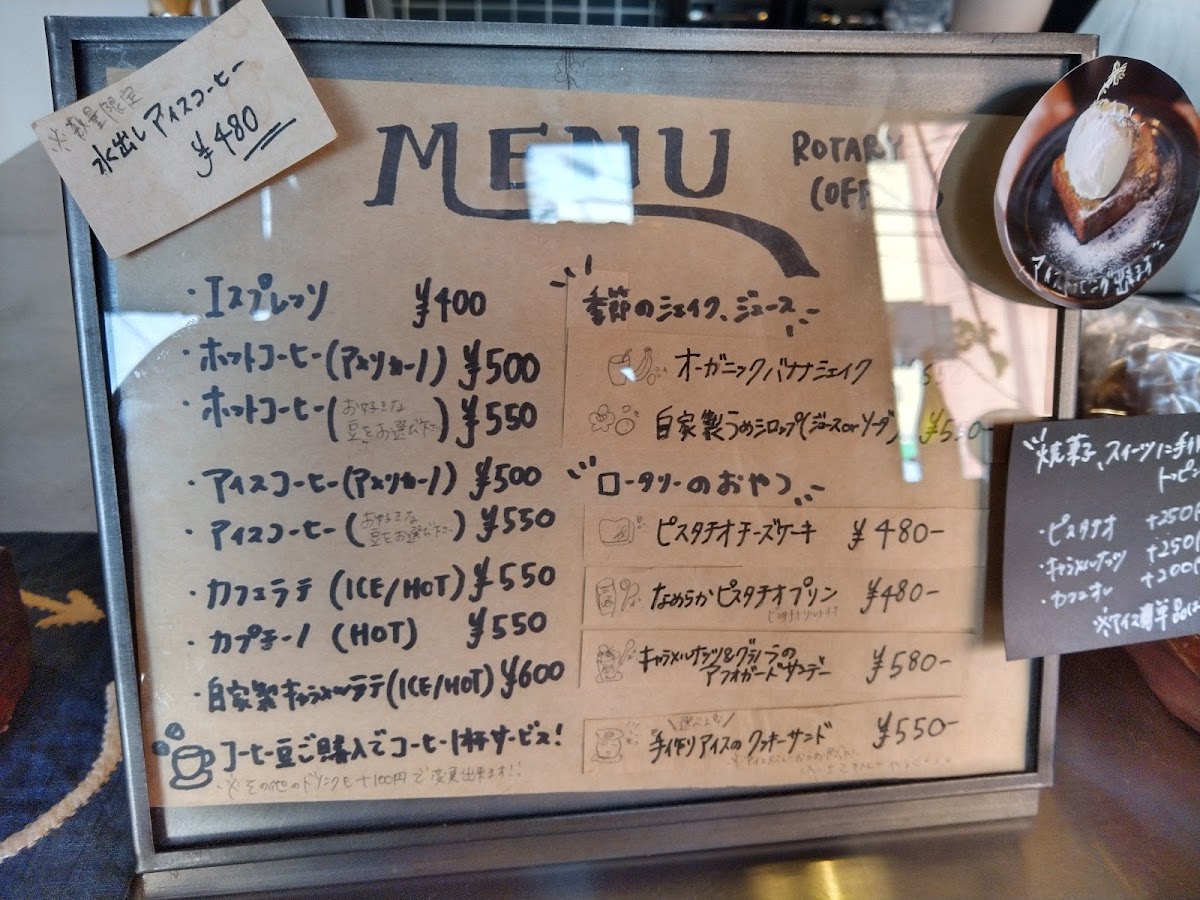 ※数量限定
水出しアイスコーヒー
¥480
MENU
ROTARY
COFF
・エスプレッソ ¥400
・ホットコーヒー(アメリカーノ) ¥500
・ホットコーヒー(お好きな豆をお選び下さい) ¥550
・アイスコーヒー(アメリカーノ) ¥500
・アイスコーヒー(お好きな豆をお選び下さい) ¥550
・カフェラテ (ICE/HOT) ¥550
・カプチーノ (HOT) ¥550
・自家製キャラメルラテ(ICE/HOT) ¥600
コーヒー豆ご購入でコーヒー1杯サービス!
※その他のドリンクも+100円で変更出来ます!!
季節のシェイク、ジュース
オーガニックバナナシェイク
自家製うめシロップ(ジュースorソーダ)
ロータリーのおやつ
ピスタチオチーズケーキ ¥480-
なめらかピスタチオプリン ¥480-
キャラメルナッツ&グラノーラの
アフォガードサンデー ¥580-
選べる
手作りアイスのクッキーサンド ¥550-
アイストッピング出来ます
焼菓子、スイーツに手作
トッピ
・ピスタチオ +250
・キャラメルナッツ +250
・カフェオレ +200
※アイス単品